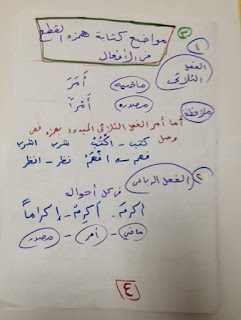 ٣
مواضع كتابة همزة القطع
في الأفعال
١
الفعل
الثلاثي
ماضيه أَمَرَ
مصدره أَمْراً
ملاحظة
أما أمر الفعل الثلاثي المبدوء بهمزة فهي
وصل
كتب - اكتُبْ شرب اشرب
فهم - افهَمْ نظر - انظر
٢ الفعل الرباعي في كل أحوال
أكرمَ - أكرِمْ - إكراماً
ماضي - أمر - مصدره
٤